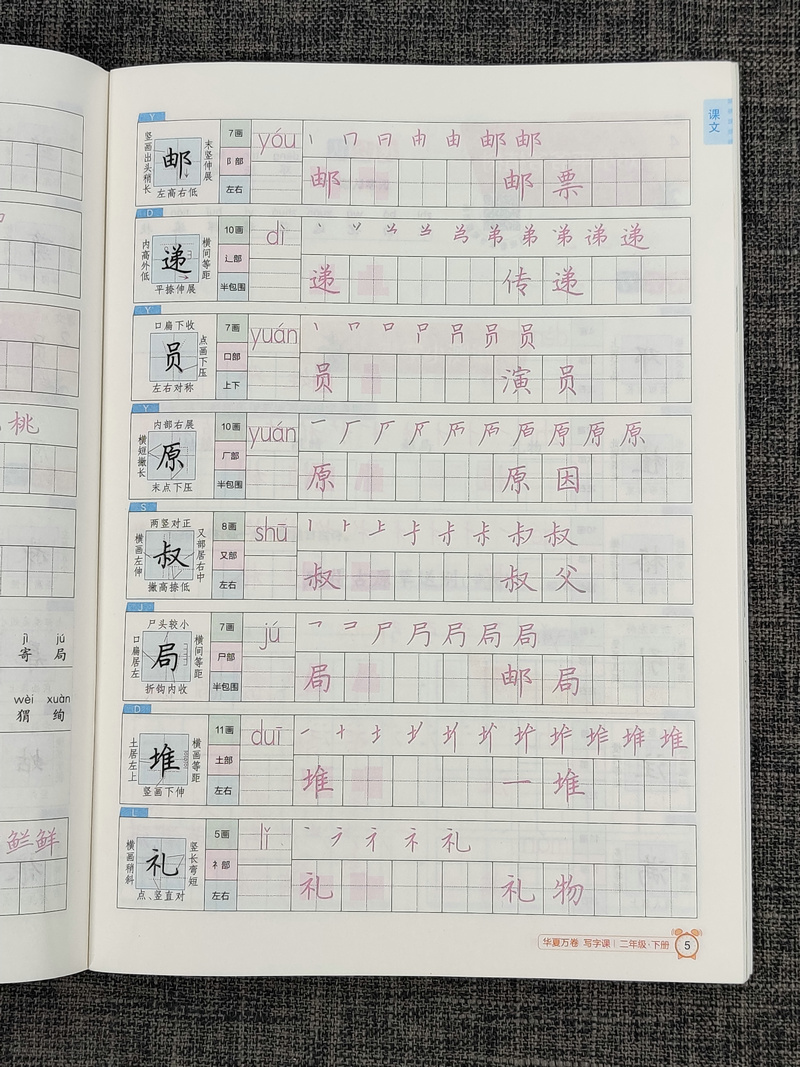 课文
Y
竖画出头稍长
邮
末竖伸展
左高右低
7画
阝部
左右
yóu
丨 冂 日 由 由 邮 邮
邮 邮 票
D
内高外低
递
横间等距
平捺伸展
10画
辶部
半包围
dì
弟 弟 弟 递 递
递 传 递
Y
口扁下收
员
点画下压
左右对称
7画
口部
上下
yuán
丨 口 口 员 员
员 演 员
Y
内部右展
横短撇长
原
末点下压
10画
厂部
半包围
yuán
一 厂 原 原 原
原 原 因
S
两竖对正
横画左伸
叔
又部居右中
撇高捺低
8画
又部
左右
shū
丨 上 叔 叔
叔 叔 父
J
尸头较小
口扁居左
局
横间等距
折钩内收
7画
尸部
半包围
jú
尸 局 局
局 邮 局
D
土居左上
堆
横画等距
竖画下伸
11画
土部
左右
duī
一 十 堆 堆
堆 一 堆
L
横画稍斜
礼
竖长弯短
点、竖直对
5画
礻部
左右
lǐ
丶 礻 礼
礼 礼 物
华夏万卷 写字课 | 二年级·下册 5
桃
jì jú
寄 局
wèi xuàn
猬 绚
鲜 鲜